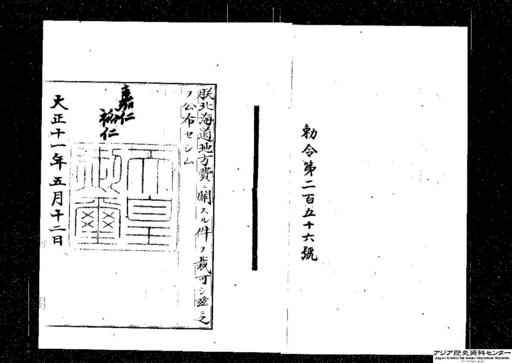 勅令第二百五十六號
朕北海道地方費ニ關スル件ヲ裁可シ茲ニ之
ヲ公布セシム
嘉仁
裕仁
天皇
御璽
大正十一年五月十二日
アジア歴史資料センター
Japan Center for Asian Historical Records